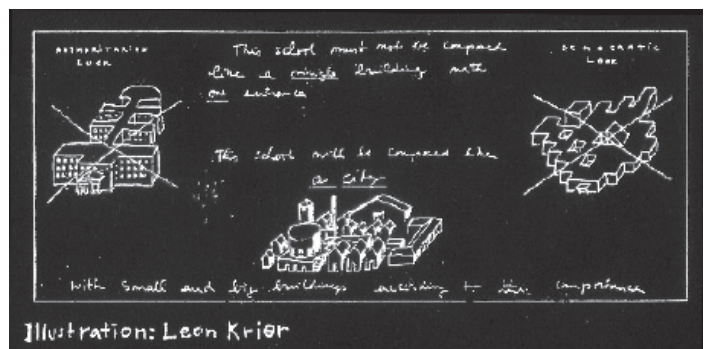 AUTHORITARIAN LOOK
This school must not be composed
like a single building with
one entrance
DEMOCRATIC LOOK
This school will be composed like
a city
with small and big buildings according to their importance
Illustration: Leon Krier